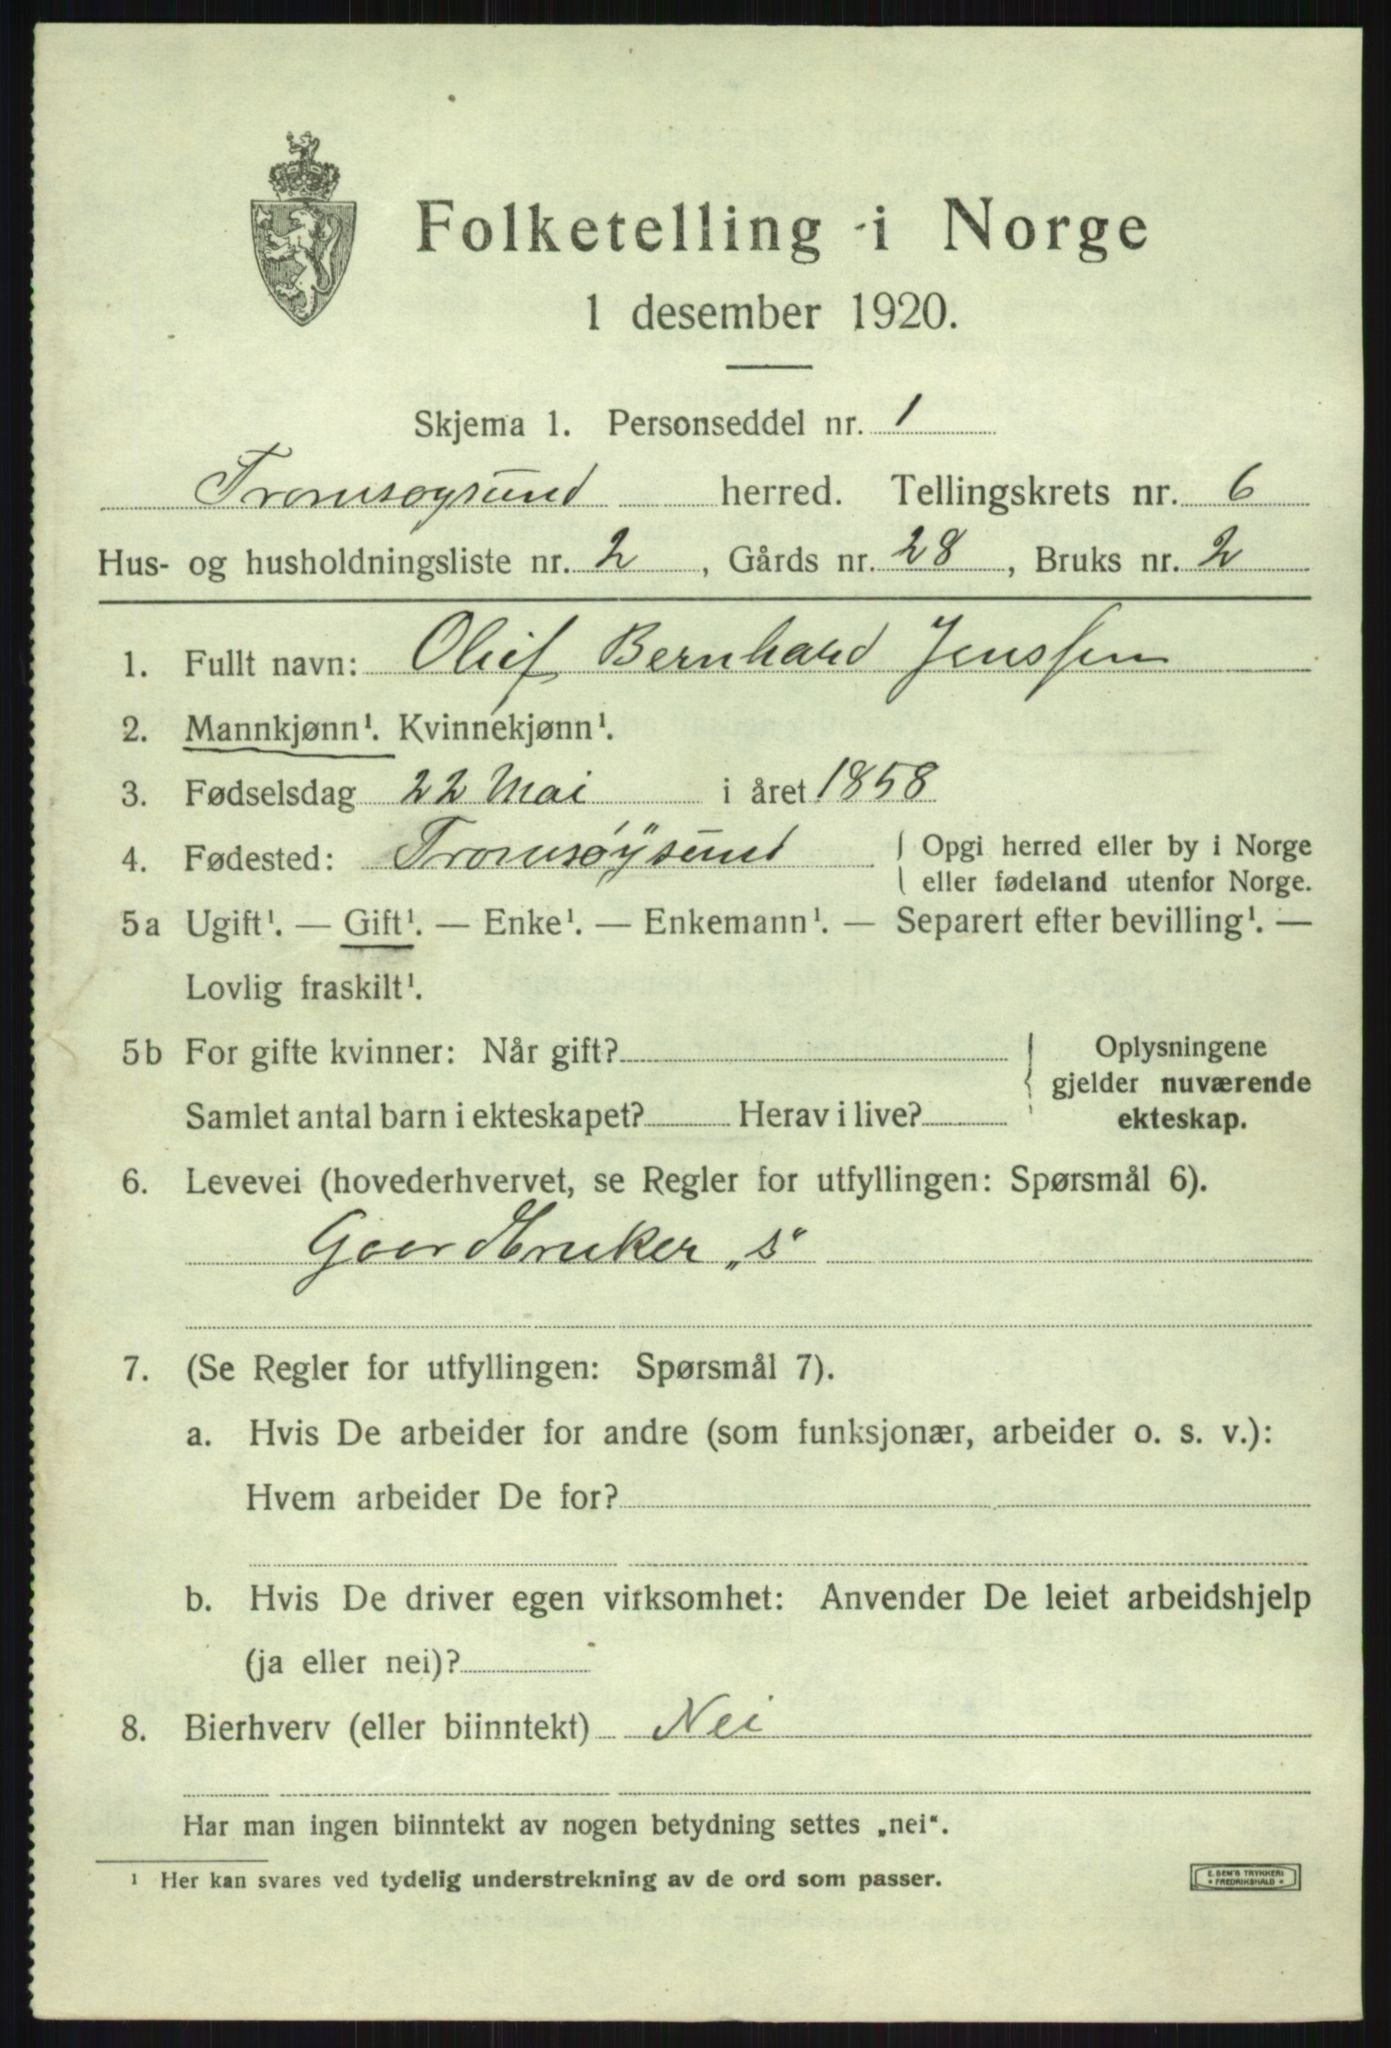 Folketelling i Norge
1 desember 1920.
Skjema 1. Personseddel nr. 1
Tromsøysund herred. Tellingskrets nr. 6
Hus- og husholdningsliste nr. 2, Gårds nr. 28, Bruks nr. 2
1. Fullt navn: Oluf Bernhard Jenssen
2. Mannkjønn¹. Kvinnekjønn¹.
3. Fødselsdag 22 Mai i året 1858
4. Fødested: Tromsøysund { Opgi herred eller by i Norge
eller fødeland utenfor Norge.
5a Ugift¹. — Gift¹. — Enke¹. — Enkemann¹. — Separert efter bevilling¹. —
Lovlig fraskilt¹.
5b For gifte kvinner: Når gift? { Oplysningene
gjelder nuværende
Samlet antal barn i ekteskapet? Herav i live? ekteskap.
6. Levevei (hovederhvervet, se Regler for utfyllingen: Spørsmål 6).
Gaardbruker „s“
7. (Se Regler for utfyllingen: Spørsmål 7).
a. Hvis De arbeider for andre (som funksjonær, arbeider o. s. v.):
Hvem arbeider De for?
b. Hvis De driver egen virksomhet: Anvender De leiet arbeidshjelp
(ja eller nei)?
8. Bierhverv (eller biinntekt) Nei
Har man ingen biinntekt av nogen betydning settes „nei“.
¹ Her kan svares ved tydelig understrekning av de ord som passer.
E. SEM'S TRYKKERI
FREDRIKSHALD